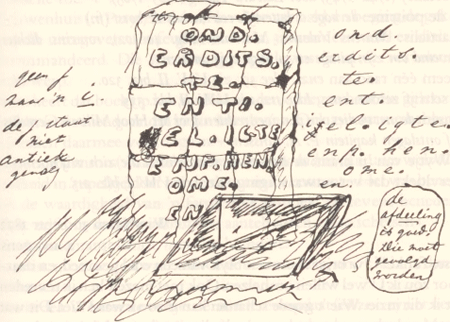 OND.
ERDITS.
TE.
ENTI.
EL.IGTE
INP.HEN
OME.
EN
geen j
maar n i
de j staat
niet
antiek
genoeg
ond.
erdits.
ten
ent
hen
ome.
en.
de
afdeeling
is goed.
Die moet
gevolgd
worden